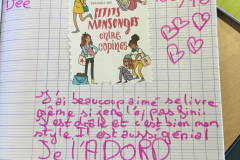 Dée
PETITS
MENSONGES
entre
COPINES
J'ai beaucoup aimé se livre
même si je ne l'ai pas fini
c'est drôle et c'est bien mon
style Il est aussi génial
Je L'ADORO